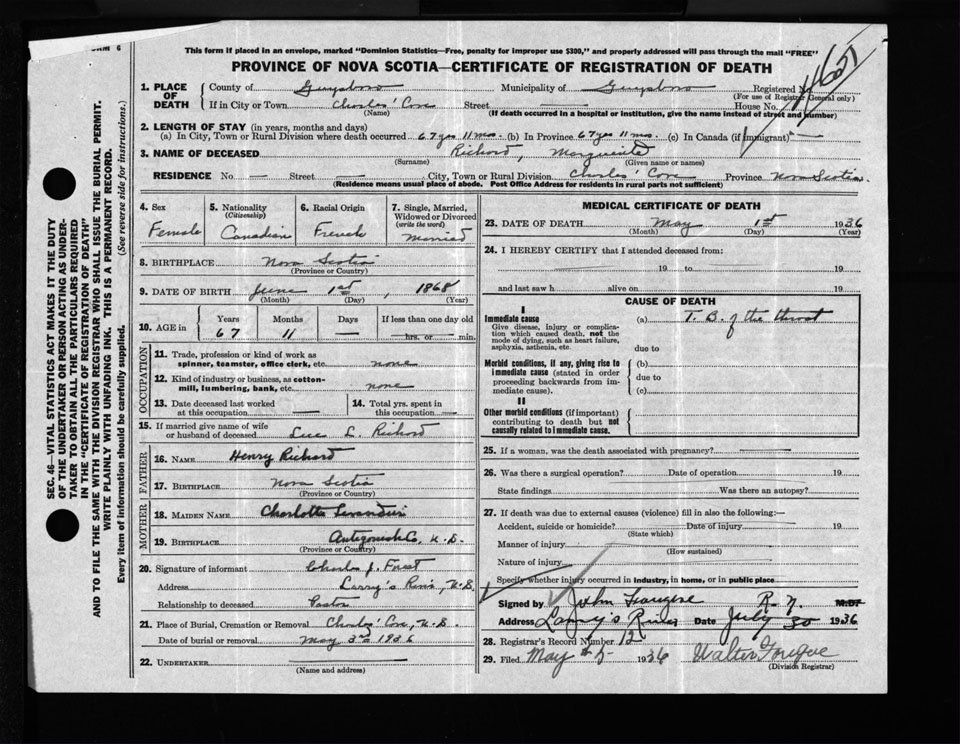 ORM 6
This form if placed in an envelope, marked "Dominion Statistics—Free, penalty for improper use $300," and properly addressed will pass through the mail "FREE"
PROVINCE OF NOVA SCOTIA—CERTIFICATE OF REGISTRATION OF DEATH
1. PLACE OF DEATH County of Guysboro Municipality of Guysboro Registered No.
(For use of Registrar General only)
If in City or Town Charles' Cove Street — House No.
(Name) (If death occurred in a hospital or institution, give the name instead of street and number)
2. LENGTH OF STAY (in years, months and days)
(a) In City, Town or Rural Division where death occurred 67 yrs 11 mos. (b) In Province 67 yrs 11 mos. (c) In Canada (if immigrant) —
3. NAME OF DECEASED Richard, Marguerite
(Surname) (Given name or names)
RESIDENCE No. — Street — City, Town or Rural Division Charles' Cove Province Nova Scotia
(Residence means usual place of abode. Post Office Address for residents in rural parts not sufficient)
4. Sex Female
5. Nationality (Citizenship) Canadian
6. Racial Origin French
7. Single, Married, Widowed or Divorced (write the word) Married
8. BIRTHPLACE Nova Scotia
(Province or Country)
9. DATE OF BIRTH June 1st, 1868
(Month) (Day) (Year)
10. AGE in Years 67 Months 11 Days — If less than one day old hrs. or min.
OCCUPATION
11. Trade, profession or kind of work as spinner, teamster, office clerk, etc. none
12. Kind of industry or business, as cotton-mill, lumbering, bank, etc. none
13. Date deceased last worked at this occupation —
14. Total yrs. spent in this occupation —
15. If married give name of wife or husband of deceased Luc L. Richard
FATHER
16. NAME Henry Richard
17. BIRTHPLACE Nova Scotia
(Province or Country)
MOTHER
18. MAIDEN NAME Charlotte
19. BIRTHPLACE Antigonish Co. N.S.
(Province or Country)
20. Signature of informant Charles J. Forest
Address Larry's River, N.S.
Relationship to deceased Pastor
21. Place of Burial, Cremation or Removal Charles' Cove, N.S.
Date of burial or removal May 3rd 1936
22. UNDERTAKER
(Name and address)
MEDICAL CERTIFICATE OF DEATH
23. DATE OF DEATH May 1st 1936
(Month) (Day) (Year)
24. I HEREBY CERTIFY that I attended deceased from:
19 to 19
and last saw h alive on 19
CAUSE OF DEATH
I
Immediate cause (a) T. B. of the throat
Give disease, injury or complication which caused death, not the mode of dying, such as heart failure, asphyxia, asthenia, etc.
due to
Morbid conditions, if any, giving rise to immediate cause (stated in order proceeding backwards from immediate cause).
(b)
due to
(c)
II
Other morbid conditions (if important) contributing to death but not causally related to immediate cause.
25. If a woman, was the death associated with pregnancy? —
26. Was there a surgical operation? Date of operation 19
State findings Was there an autopsy?
27. If death was due to external causes (violence) fill in also the following:—
Accident, suicide or homicide? Date of injury 19
(State which)
Manner of injury
(How sustained)
Nature of injury
Specify whether injury occurred in industry, in home, or in public place
Signed by John Fougere R. N. M.D.
Address Larry's River Date July 30 1936
28. Registrar's Record Number 12
29. Filed May 1936 Walter Fougere
(Division Registrar)
SEC. 46—VITAL STATISTICS ACT MAKES IT THE DUTY
OF THE UNDERTAKER OR PERSON ACTING AS UNDER-
TAKER TO OBTAIN ALL THE PARTICULARS REQUIRED
IN THE "CERTIFICATE OF REGISTRATION OF DEATH"
AND TO FILE THE SAME WITH THE DIVISION REGISTRAR WHO SHALL ISSUE THE BURIAL PERMIT.
WRITE PLAINLY WITH UNFADING INK. THIS IS A PERMANENT RECORD.
Every item of information should be carefully supplied. (See reverse side for instructions.)